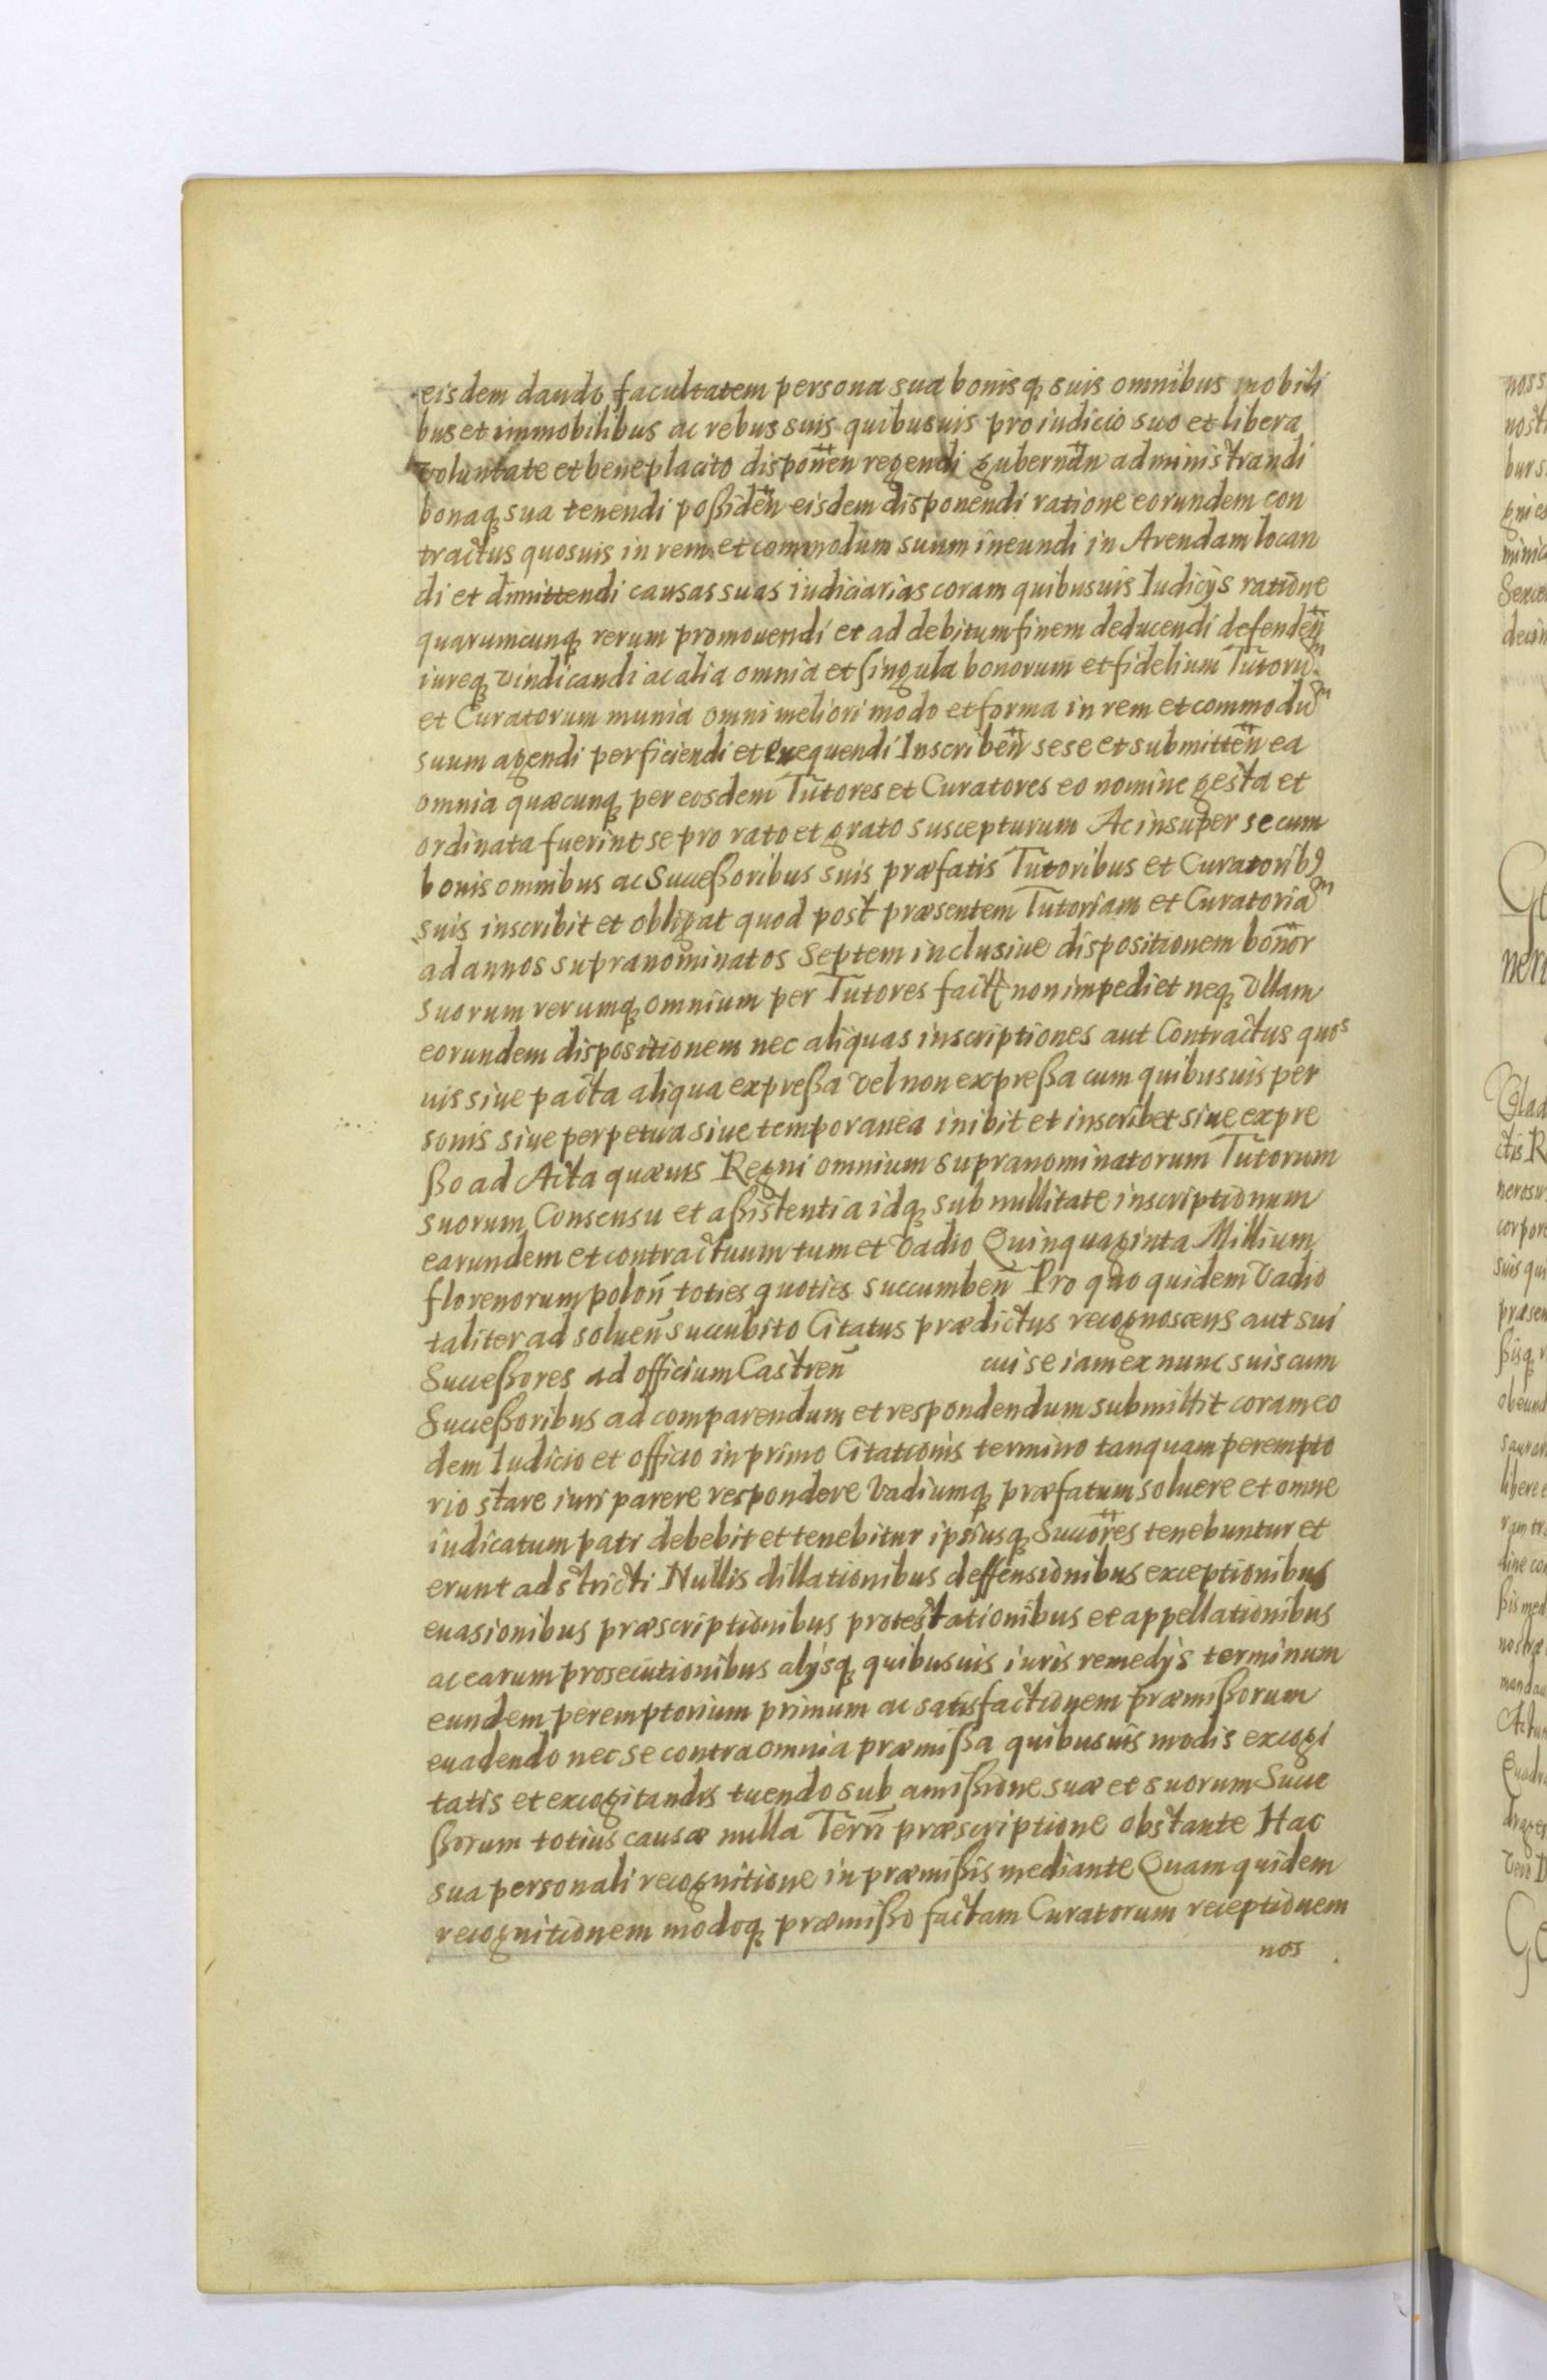 eisdem dando facultatem persona sua bonisq suis omnibus mobili
bus et immobilibus ac rebus suis quibusuis pro iudicio suo et libera
voluntate et beneplacito disponen̄ regendi gubernan̄ administrandi
bonaq sua tenendi possiden̄ eisdem disponendi ratione eorundem con
tractus quosuis in rem et commodum suum ineundi in Arendam locan
di et dimittendi causas suas iudiciarias coram quibusuis Iudicijs ratione
quarumcunq rerum promouendi et ad debitum finem deducendi defenden̄
iureq vindicandi ac alia omnia et singula bonorum et fidelium Tutorum
et Curatorum munia omni meliori modo et forma in rem et commodum
suum agendi perficiendi et exequendi Inscriben̄ sese et submitten̄ ea
omnia quæcunq per eosdem Tutores et Curatores eo nomine gesta et
ordinata fuerint se pro rato et grato suscepturum Ac insuper se cum
bonis omnibus ac Successoribus suis præfatis Tutoribus et Curatorib9
suis inscribit et obligat quod post præsentem Tutoriam et Curatoriam
ad annos supranominatos Septem inclusiue dispositionem bonor̄
suorum rerumq omnium per Tutores fact non impediet neq Vllam
eorundem dispositionem nec aliquas inscriptiones aut Contractus quos
uis siue pacta aliqua expressa vel non expressa cum quibusuis per
sonis siue perpetua siue temporanea inibit et inscribet sine expre
sso ad Acta quæuis Regni omnium supranominatorum Tutorum
suorum Consensu et assistentia idq sub nullitate inscriptionum
earundem et contractuum tum et Vadio Quinquaginta Millium
florenorum polon̄ toties quoties succumben̄ Pro quo quidem Vadio
taliter ad soluen̄ succubito Citatus prædictus recognoscens aut sui
Successores ad officium Castren̄ cui se iam ex nunc suis cum
Successoribus ad comparendum et respondendum submittit coram eo
dem Iudicio et officio in primo Citationis termino tanquam perempto
rio stare iuri parere respondere Vadiumq præfatum soluere et omne
iudicatum pati debebit et tenebitur ipsiusq Succor̄es tenebuntur et
erunt adstricti Nullis dillationibus deffensionibus exceptionibus
euasionibus præscriptionibus protestationibus et appellationibus
ac earum prosecutionibus alijsq quibusuis iuris remedijs terminum
eundem peremptorium primum ac satisfactionem præmissorum
euadendo nec se contra omnia præmissa quibusuis modis excogi
tatis et excogitandis tuendo sub amissione suæ et suorum Succe
ssorum totius causæ nulla Terrī præscriptione obstante Hac
sua personali recognitione in præmissis mediante Quam quidem
recognitionem modoq præmisso factam Curatorum receptionem
nos